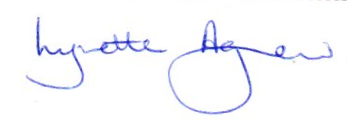 Lynette Agnew